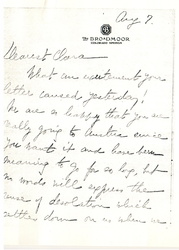 Aug 7.
The BROADMOOR
COLORADO SPRINGS
Dearest Clara
What an excitement your
letter caused yesterday!
We are so happy that you are
really going to Austria since
you want it and have been
meaning to go for so long, but
no words will express the
sense of desolation which
settles down on us when we